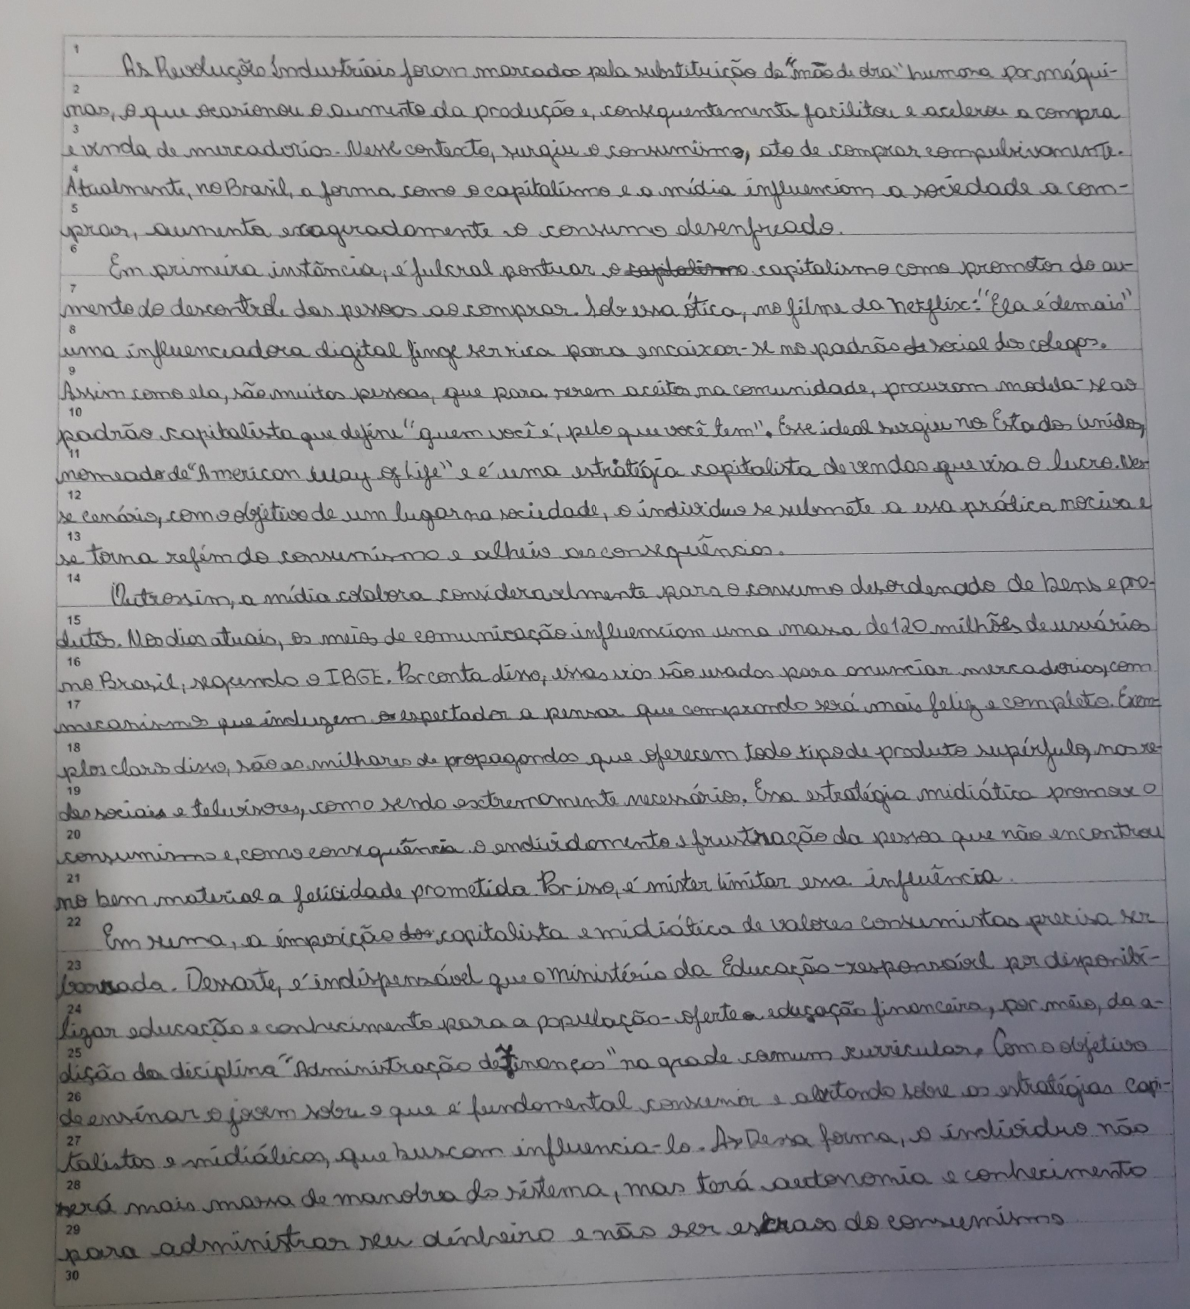 1
As Revolução Industriais foram marcadas pela substituição da "mão de obra" humana por máqui-
2
nas, o que ocasionou o aumento da produção e, consequentemente facilitou e acelerou a compra
3
e venda de mercadorias. Nesse contexto, surgiu o consumismo, ato de comprar compulsivamente.
4
Atualmente, no Brasil, a forma como o capitalismo e a mídia influenciam, a sociedade a com-
5
prar, aumenta exageradamente o consumo desenfreado.
6
Em primeira instância, é fulcral pontuar o capitalismo capitalismo como promotor do au-
7
mento do descontrole das pessoas ao comprar. Sob essa ótica, no filme da Netflix: "Ela é demais"
8
uma influenciadora digital finge ser rica para encaixar-se no padrão de social dos colegas.
9
Assim como ela, são muitas pessoas, que para serem aceitas na comunidade, procuram modela-se ao
10
padrão capitalista que define "quem você é, pelo que você tem". Esse ideal surgiu nos Estados Unidos,
11
nomeado de "American way of life" e é uma estratégia capitalista de vendas que visa o lucro. Nes-
12
se cenário, com o objetivo de um lugar na sociedade, o indivíduo se submete a essa prática nociva e
13
se torna refém do consumismo e alheio as consequências.
14
Outrossim, a mídia colabora consideravelmente para o consumo desordenado de bens e pro-
15
dutos. Nos dias atuais, os meios de comunicação influenciam uma massa de 120 milhões de usuários
16
no Brasil, segundo o IBGE. Por conta disso, essas vias são usadas para anunciar mercadorias, com
17
mecanismos que induzem o espectador a pensar que comprando será mais feliz e completo. Exem-
18
plos claro disso, são as milhares de propagandas que oferecem todo tipo de produto supérfulo, nas re-
19
des sociais e televisores, como sendo extremamente necessários. Essa estratégia midiática promove o
20
consumismo e, como consequância o endividamento e frustração da pessoa que não encontrou
21
no bem material a felicidade prometida. Por isso, é mister limitar essa influência.
22
Em suma, a imposição do capitalista e midiática de valores consumistas precisa ser
23
barrada. Dessarte, é indispensável que o ministério da Educação - responsável por disponibi-
24
lizar educação e conhecimento para a população - oferte a educação financeira, por meio, da a-
25
dição da disciplina "Administração de finanças" na grade comum curricular. Com o objetivo
26
de ensinar o jovem sobre o que é fundamental consumir e alertando sobre as estratégias capi-
27
talistas e midiáticas, que buscam influencia-lo. As Dessa forma, o indivíduo não
28
será mais massa de manobra do sistema, mas terá autonomia e conhecimento
29
para administrar seu dinheiro e não ser escravo do consumismo
30